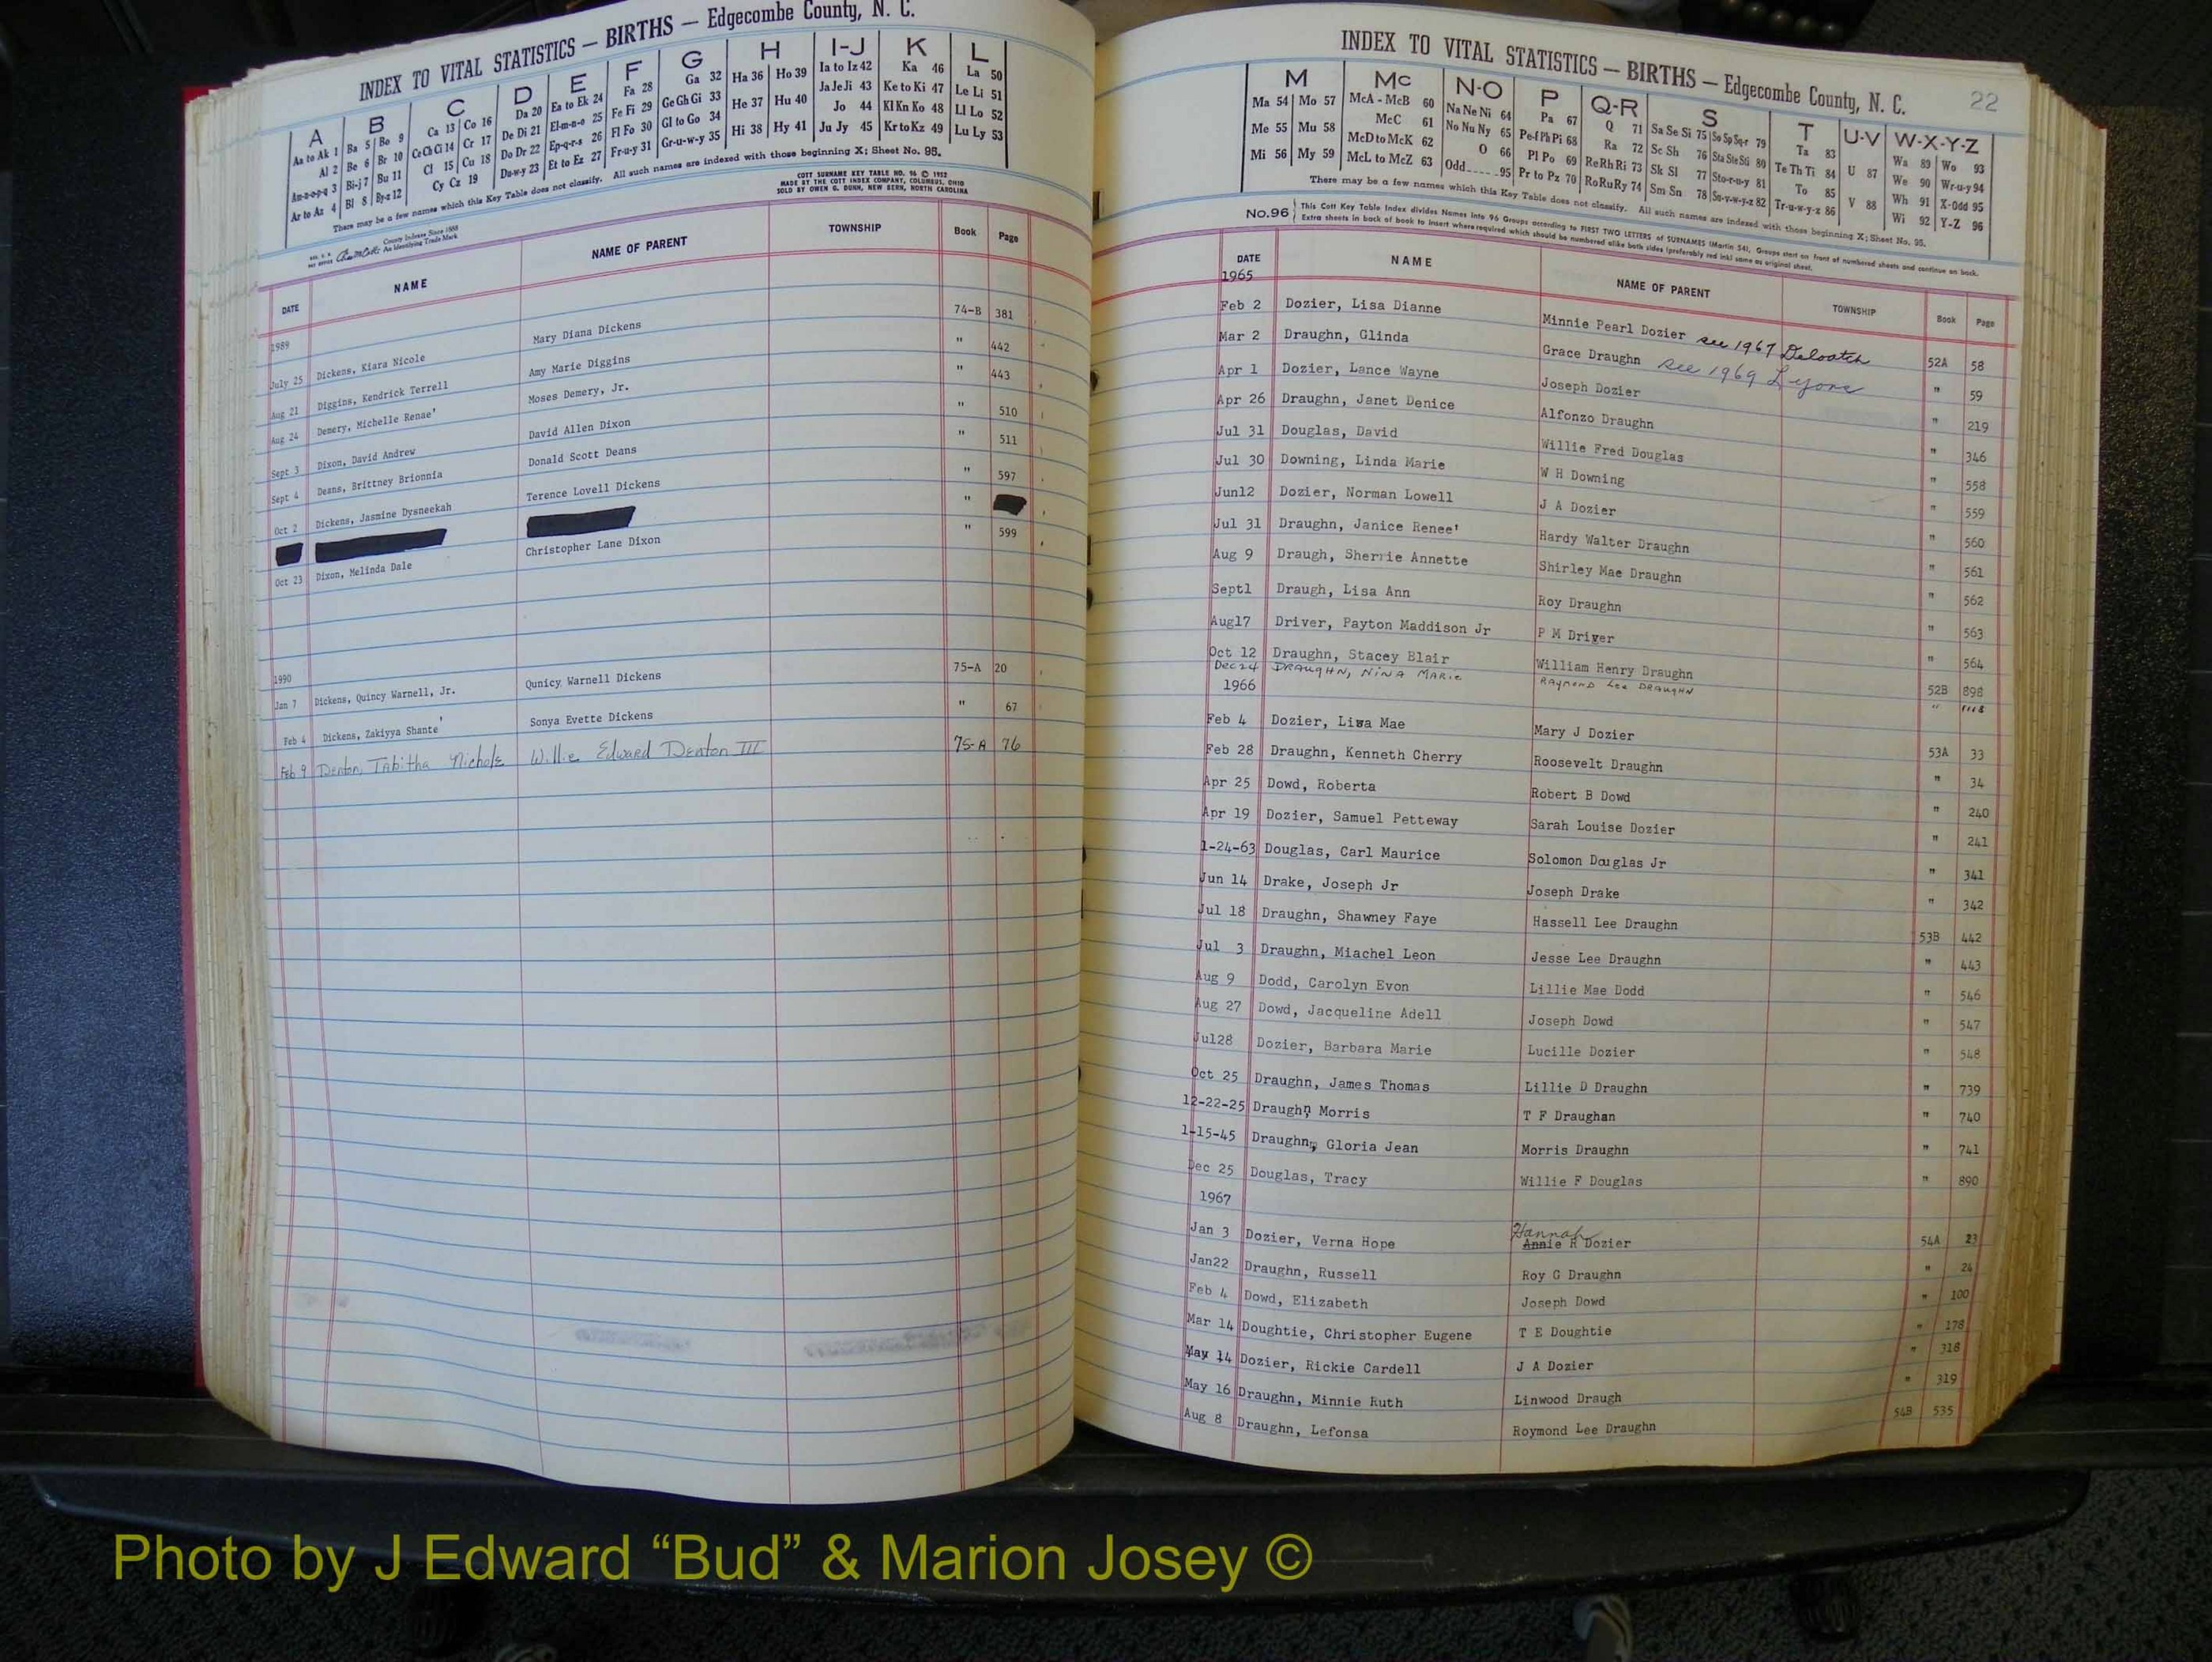 INDEX TO VITAL STATISTICS — BIRTHS — Edgecombe County, N. C.
A B C D E F G H I-J K L
Aa to Ak 1 Ba 5 Bo 9 Ca 13 Co 16 Da 20 Ea to Ek 24 Fa 28 Ga 32 Ha 36 Ho 39 Ia to Iz 42 Ka 46 La 50
Al 2 Be 6 Br 10 Ce Ch Ci 14 Cr 17 De Di 21 El-m-n-o 25 Fe Fi 29 Ge Gh Gi 33 He 37 Hu 40 Ja Je Ji 43 Ke to Ki 47 Le Li 51
Am-n-o-p-q 3 Bi-j 7 Bu 11 Cl 15 Cu 18 Do Dr 22 Ep-q-r-s 26 Fl Fo 30 Gl to Go 34 Hi 38 Hy 41 Jo 44 Kl Kn Ko 48 Ll Lo 52
Ar to Az 4 Bl 8 By-z 12 Cy Cz 19 Du-w-y 23 Et to Ez 27 Fr-u-y 31 Gr-u-w-y 35 Ju Jy 45 Kr to Kz 49 Lu Ly 53
There may be a few names which this Key Table does not classify. All such names are indexed with those beginning X; Sheet No. 95.
COTT SURNAME KEY TABLE NO. 96 © 1952
MADE BY THE COTT INDEX COMPANY, COLUMBUS, OHIO
SOLD BY OWEN G. DUNN, NEW BERN, NORTH CAROLINA
County Indexes Since 1888
An Identifying Trade Mark
DATE NAME NAME OF PARENT TOWNSHIP Book Page
1989
July 25 Dickens, Kiara Nicole Mary Diana Dickens 74-B 381
Aug 21 Diggins, Kendrick Terrell Amy Marie Diggins " 442
Aug 24 Demery, Michelle Renae' Moses Demery, Jr. " 443
Sept 3 Dixon, David Andrew David Allen Dixon " 510
Sept 4 Deans, Brittney Brionnia Donald Scott Deans " 511
Oct 2 Dickens, Jasmine Dysneekah Terence Lovell Dickens " 597
"
Oct 23 Dixon, Melinda Dale Christopher Lane Dixon " 599
1990
Jan 7 Dickens, Quincy Warnell, Jr. Qunicy Warnell Dickens 75-A 20
Feb 4 Dickens, Zakiyya Shante' Sonya Evette Dickens " 67
Feb 9 Denton, Tabitha Nichole Willie Edward Denton III 75-A 76
INDEX TO VITAL STATISTICS — BIRTHS — Edgecombe County, N. C. 22
M Mc N-O P Q-R S T U-V W-X-Y-Z
Ma 54 Mo 57 McA - McB 60 Na Ne Ni 64 Pa 67 Q 71 Sa Se Si 75 So Sp Sq-r 79 Ta 83 U 87 Wa 89 Wo 93
Me 55 Mu 58 McC 61 No Nu Ny 65 Pe-f Ph Pi 68 Ra 72 Sc Sh 76 Sta Ste Sti 80 Te Th Ti 84 V 88 We 90 Wr-u-y 94
Mi 56 My 59 McD to McK 62 O 66 Pl Po 69 Re Rh Ri 73 Sk Sl 77 Sto-r-u-y 81 To 85 Wh 91 X-Odd 95
McL to McZ 63 Odd 95 Pr to Pz 70 Ro Ru Ry 74 Sm Sn 78 Su-v-w-y-z 82 Tr-u-w-y-z 86 Wi 92 Y-Z 96
There may be a few names which this Key Table does not classify. All such names are indexed with those beginning X; Sheet No. 95.
No.96 This Cott Key Table Index divides Names into 96 Groups according to FIRST TWO LETTERS of SURNAMES (Martin 54). Groups start on front of numbered sheets and continue on back.
Extra sheets in back of book to insert where required which should be numbered alike both sides (preferably red ink) same as original sheet.
DATE NAME NAME OF PARENT TOWNSHIP Book Page
1965
Feb 2 Dozier, Lisa Dianne Minnie Pearl Dozier see 1967 Deloatch 52A 58
Mar 2 Draughn, Glinda Grace Draughn see 1969 Lyons " 59
Apr 1 Dozier, Lance Wayne Joseph Dozier " 219
Apr 26 Draughn, Janet Denice Alfonzo Draughn " 346
Jul 31 Douglas, David Willie Fred Douglas " 558
Jul 30 Downing, Linda Marie W H Downing " 559
Jun12 Dozier, Norman Lowell J A Dozier " 560
Jul 31 Draughn, Janice Renee' Hardy Walter Draughn " 561
Aug 9 Draugh, Sherrie Annette Shirley Mae Draughn " 562
Sept1 Draugh, Lisa Ann Roy Draughn " 563
Aug17 Driver, Payton Maddison Jr P M Driver " 564
Oct 12 Draughn, Stacey Blair William Henry Draughn 52B 898
Dec 24 DRAUGHN, NINA MARIE RAYMOND Lee DRAUGHN " 1118
1966
Feb 4 Dozier, Lisa Mae Mary J Dozier 53A 33
Feb 28 Draughn, Kenneth Cherry Roosevelt Draughn " 34
Apr 25 Dowd, Roberta Robert B Dowd " 240
Apr 19 Dozier, Samuel Petteway Sarah Louise Dozier " 241
1-24-63 Douglas, Carl Maurice Solomon Douglas Jr " 341
Jun 14 Drake, Joseph Jr Joseph Drake " 342
Jul 18 Draughn, Shawney Faye Hassell Lee Draughn 53B 442
Jul 3 Draughn, Miachel Leon Jesse Lee Draughn " 443
Aug 9 Dodd, Carolyn Evon Lillie Mae Dodd " 546
Aug 27 Dowd, Jacqueline Adell Joseph Dowd " 547
Jul28 Dozier, Barbara Marie Lucille Dozier " 548
Oct 25 Draughn, James Thomas Lillie D Draughn " 739
12-22-25 Draughn, Morris T F Draughan " 740
1-15-45 Draughn, Gloria Jean Morris Draughn " 741
Dec 25 Douglas, Tracy Willie F Douglas " 890
1967
Hannah
Jan 3 Dozier, Verna Hope Annie R Dozier 54A 23
Jan22 Draughn, Russell Roy G Draughn " 24
Feb 4 Dowd, Elizabeth Joseph Dowd " 100
Mar 14 Doughtie, Christopher Eugene T E Doughtie " 178
May 14 Dozier, Rickie Cardell J A Dozier " 318
May 16 Draughn, Minnie Ruth Linwood Draugh " 319
Aug 8 Draughn, Lefonsa Roymond Lee Draughn 54B 535
Photo by J Edward “Bud” & Marion Josey ©